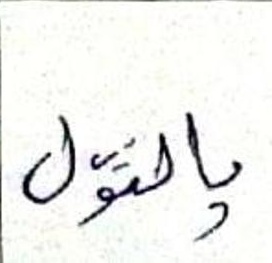 يالتوّل